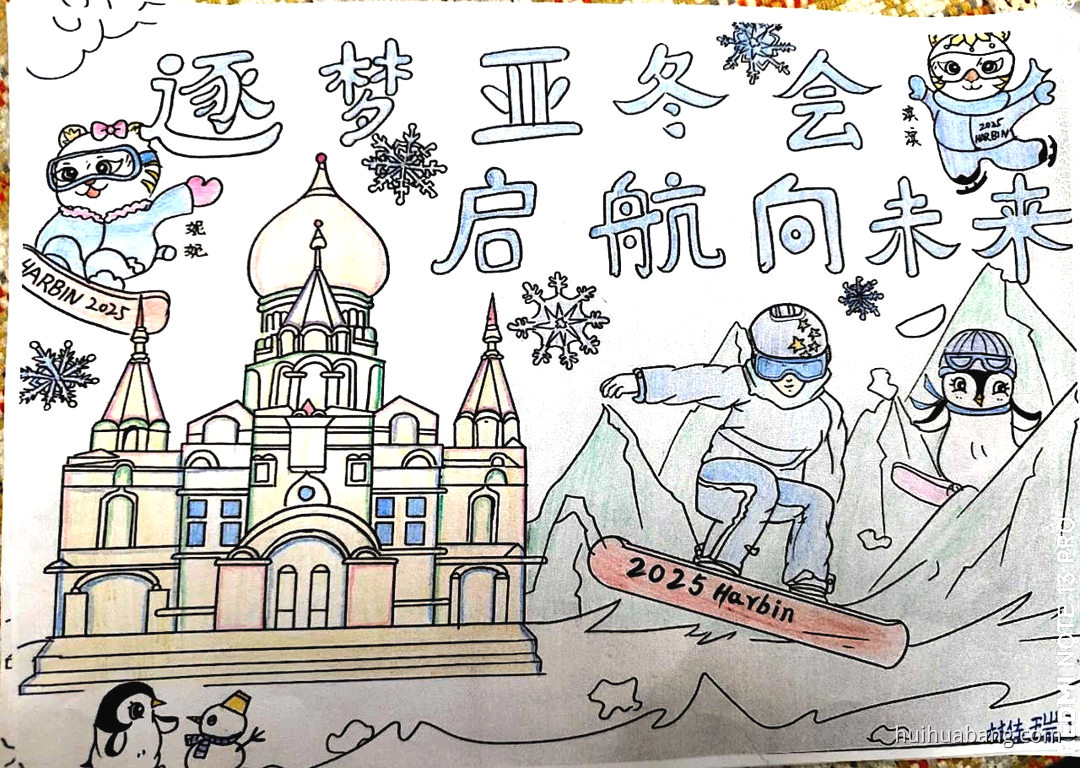 逐梦亚冬会
启航向未来
滨滨
2025
HARBIN
妮妮
HARBIN 2025
2025 Harbin
REDMI NOTE 13 PRO
huihuabang.com